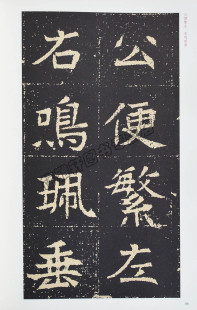 公便繁左
右鳴珮垂